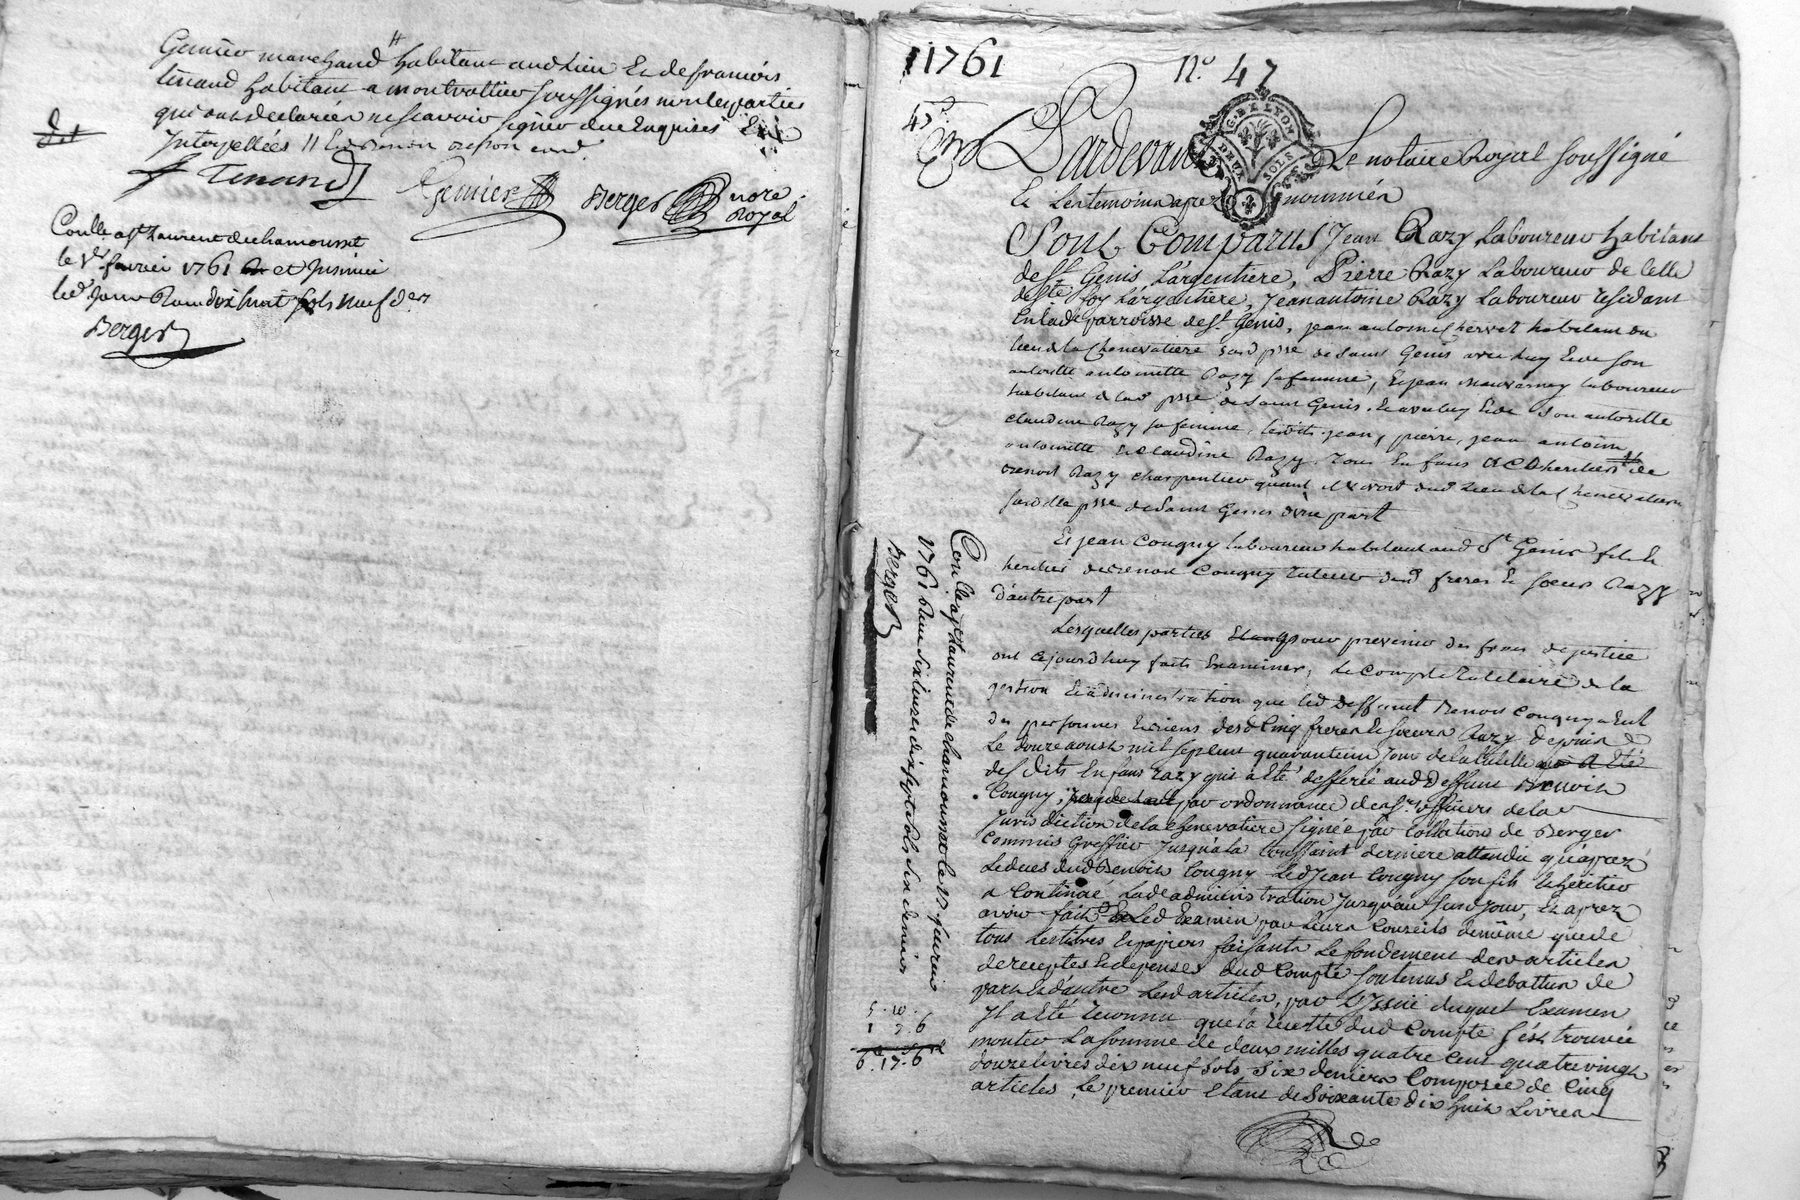 Gemier marchand # habitant aud lieu Et de françois
tinand habitant a montrottier soussignés non les parties
qui ont declarées ne scavoir signer due Enquises Et
Interpellées //
f Tinand Gemier Berger nore
Royal
Conllé a st Laurent de chamousset
le 1er fevrier 1761 et Insinué
led Jour Reçu dix huit sols neuf ders
Berger
1761 n.° 47
G. DE LYON
DEUX SOLS
Pardevant Le notaire Royal soussigné
Et Les temoins aprez nommés
Sont Comparus Jean Razy Laboureur habitant
de st Genis L'argentiere, Pierre Razy Laboureur de Celle
de ste foy L'argentiere, Jean antoine Razy Laboureur residant
En lade parroisse de st. Genis, jean antoine chervet habitant du
lieu de la Chenevatiere susd psse de saint Genis avec luy Et de son
autorité antoinette Razy sa femme, Et jean mauvernay laboureur
habitant de lad psse de saint Genis. Et avec luy Et de son autorité
claudine Razy sa femme, lesdits jean, pierre, jean antoine
antoinette Et claudine Razy. Tous Enfans et heritiers de
Benoit Razy charpentier quand il vivoit dud Lieu de la Chenevatiere
susdite psse de saint Genis d'une part
Et jean Cougny laboureur habitant aud St Genis fils Et
heritier de Benoit Cougny tuteur desd freres Et soeurs Razy
d'autre part
Lesquelles parties pour prevenir des frais de justice
ont cejourd'huy faits Examiner, Le Compte Tutelaire de la
gestion Et administration que led Deffunt Benoit Cougny a Eut
des personnes Et biens desd Cinq freres Et soeurs Razy depuis
Le douze aoust mil sept cent quarante un Jour de la tutelle
desdits Enfans Razy qui a Eté defferée aud Deffunt Benoit
Cougny, par ordonnance de mrs. les officiers de la
Jurisdiction de la chenevatiere signée par Collation de Berger
Commis Greffier Jusqu'a la toussaint derniere attendu qu'aprez
Le deces dud Benoit Cougny Led Jean Cougny son fils Et heritier
a Continué Lade administration Jusqu'au susd Jour, Et aprez
avoir fait Led Examen par Leurs Conseils de même que de
tous Les titres Et papiers faisants Le fondement des articles
de receptes Et depenses dud Compte soutenus Et debattus de
part Et d'autre Lesd articles, par L'Issuë duquel Examen
Il a Eté reconnu que la recette dud Compte s'est trouvée
monter La somme de deux milles quatre Cent quatre vingt
douze livres dix neuf sols six deniers Composée de Cinq
articles, Le premier Etant de soixante dix huit Livres
Conllé a st Laurent de chamousset le 15 fevrier
1761 Reçu six livres dix sept sols six deniers
Berger
5. 10.
1 7. 6
6. 17. 6